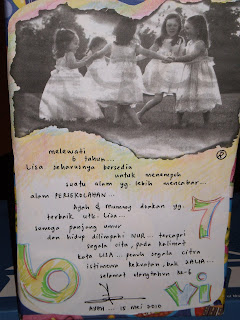 melewati
6 tahun...
Lisa seharusnya bersedia
untuk menempuh
suatu alam yg lebih mencabar...
alam PERSEKOLAHAN...
Ayah & Mummy doakan yg
terbaik utk. Lisa...
semoga panjang umur
dan hidup dilimpahi NUR... tercapai
segala cita, pada kalimat
kata LISA... penuh segala citra
istimewa kekuatan, bak SALIA...
selamat ulangtahun ke-6
7
6
vi
AYAH ... 15 MEI 2010